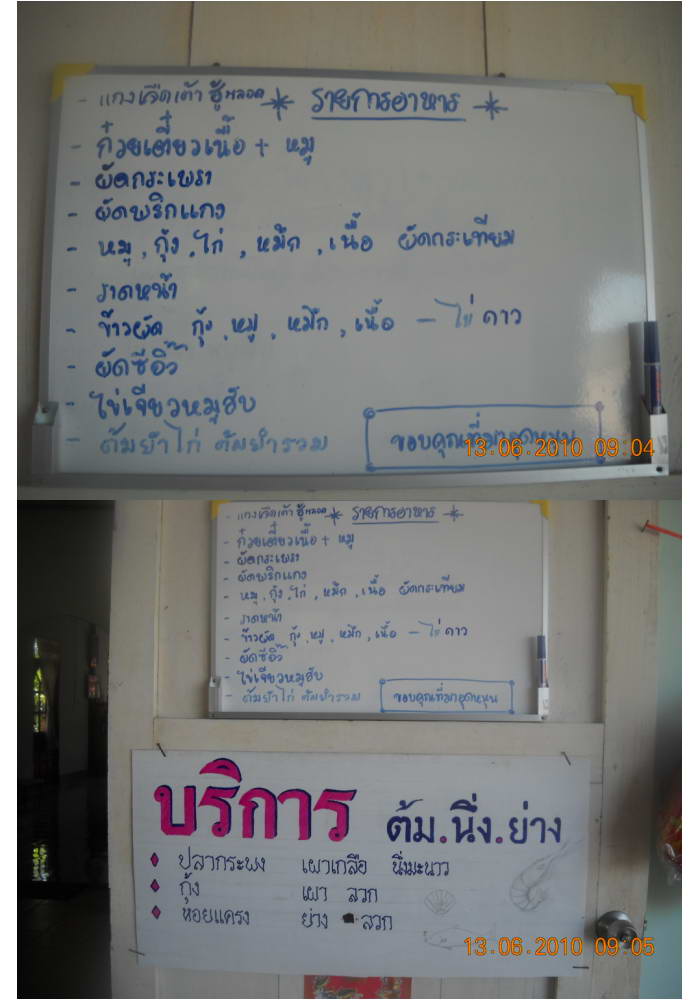 - แกงจืดเต้าฮู้หลอด
* รายการอาหาร *
- ก๋วยเตี๋ยวเนื้อ + หมู
- ผัดกระเพรา
- ผัดพริกแกง
- หมู, กุ้ง, ไก่, หมึก, เนื้อ ผัดกระเทียม
- ราดหน้า
- ข้าวผัด กุ้ง, หมู, หมึก, เนื้อ - ไข่ดาว
- ผัดซีอิ๊ว
- ไข่เจียวหมูสับ
- ต้มยำไก่ ต้มยำรวม
ขอบคุณที่มาอุดหนุน
13.06.2010 09:04
- แกงจืดเต้าฮู้หลอด
* รายการอาหาร *
- ก๋วยเตี๋ยวเนื้อ + หมู
- ผัดกระเพรา
- ผัดพริกแกง
- หมู, กุ้ง, ไก่, หมึก, เนื้อ ผัดกระเทียม
- ราดหน้า
- ข้าวผัด กุ้ง, หมู, หมึก, เนื้อ - ไข่ดาว
- ผัดซีอิ๊ว
- ไข่เจียวหมูสับ
- ต้มยำไก่ ต้มยำรวม
ขอบคุณที่มาอุดหนุน
บริการ ต้ม.นึ่ง.ย่าง
♦ ปลากระพง เผาเกลือ นึ่งมะนาว
♦ กุ้ง เผา ลวก
♦ หอยแครง ย่าง ลวก
13.06.2010 09:05